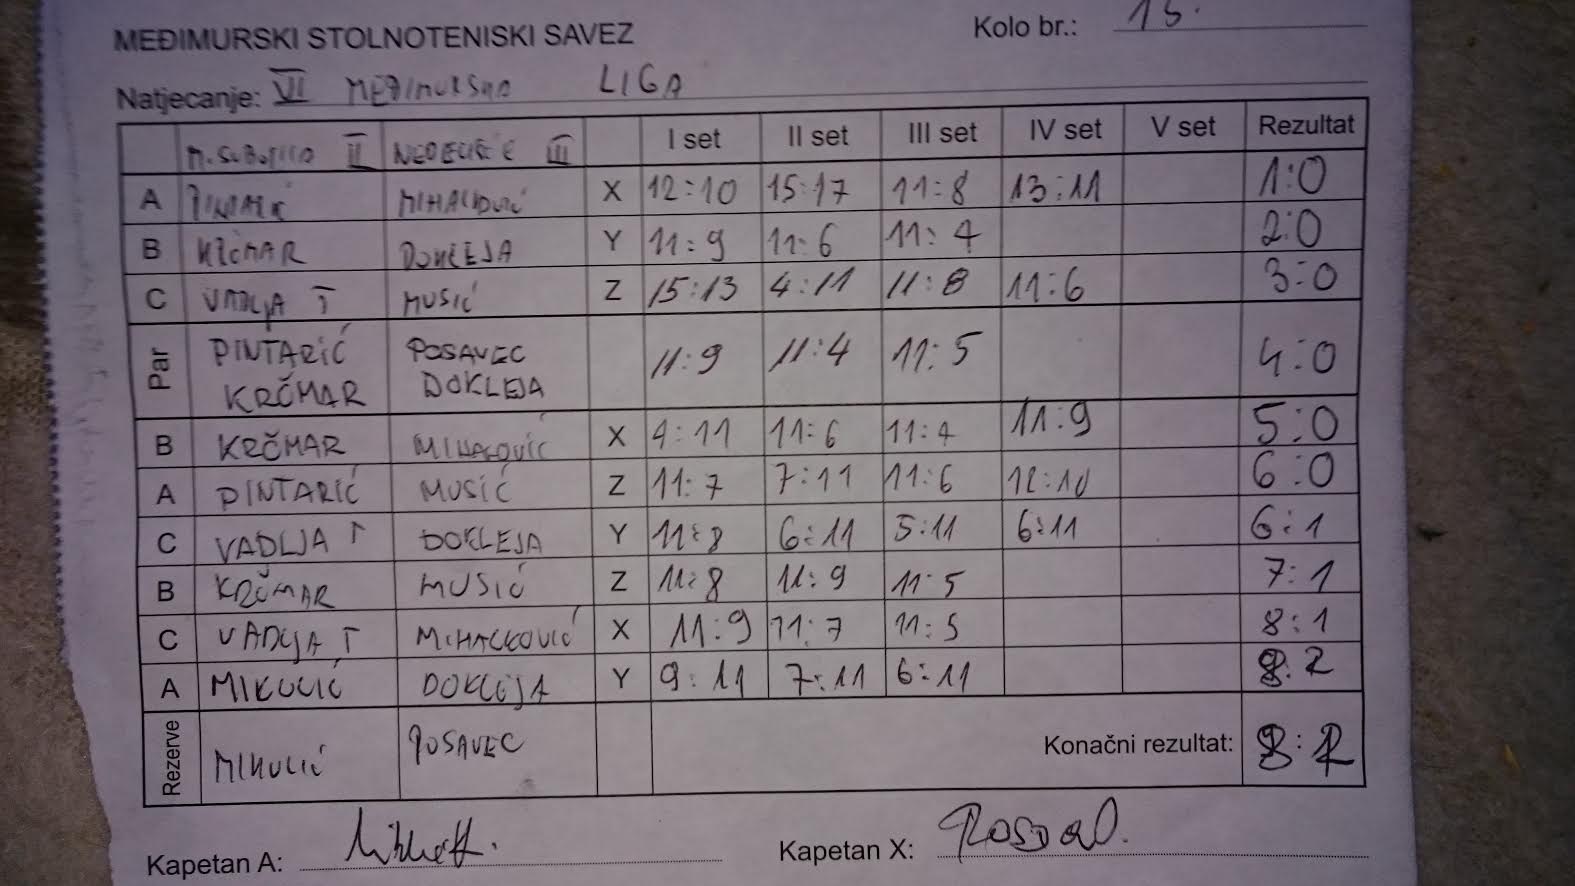 MEĐIMURSKI STOLNOTENISKI SAVEZ
Kolo br.: 15.
Natjecanje: VI MEĐIMURSKA LIGA
M. SUBOTICA II NEDELIŠĆE III I set II set III set IV set V set Rezultat
A PINTARIĆ MIHALKOVIĆ X 12:10 15:17 11:8 13:11 1:0
B KRČMAR DOKLEJA Y 11:9 11:6 11:4 2:0
C VADLJA T MUSIĆ Z 15:13 4:11 11:8 11:6 3:0
Par PINTARIĆ KRČMAR POSAVEC DOKLEJA 11:9 11:4 11:5 4:0
B KRČMAR MIHALKOVIĆ X 4:11 11:6 11:4 11:9 5:0
A PINTARIĆ MUSIĆ Z 11:7 7:11 11:6 12:10 6:0
C VADLJA T DOKLEJA Y 11:8 6:11 5:11 6:11 6:1
B KRČMAR MUSIĆ Z 11:8 11:9 11:5 7:1
C VADLJA T MIHALKOVIĆ X 11:9 11:7 11:5 8:1
A MIKULIĆ DOKLEJA Y 9:11 7:11 6:11 8:2
Rezerve MIKULIĆ POSAVEC Konačni rezultat: 8:2
Kapetan A:
Kapetan X: